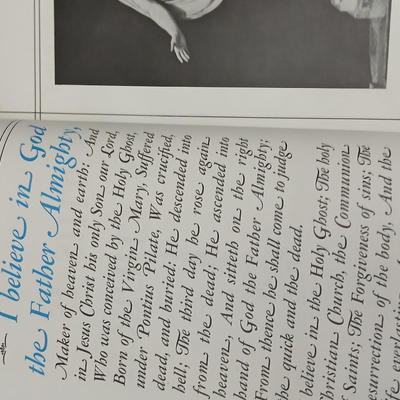 I believe in God
the Father Almighty,
Maker of heaven and earth: And
in Jesus Christ his only Son our Lord,
Who was conceived by the Holy Ghost,
Born of the Virgin Mary, Suffered
under Pontius Pilate, Was crucified,
dead, and buried: He descended into
hell; The third day he rose again
from the dead; He ascended into
heaven, And sitteth on the right
hand of God the Father Almighty;
From thence he shall come to judge
the quick and the dead.
believe in the Holy Ghost; The holy
Christian Church, the Communion
f Saints; The Forgiveness of sins; The
esurrection of the body, And the
ife everlasting.